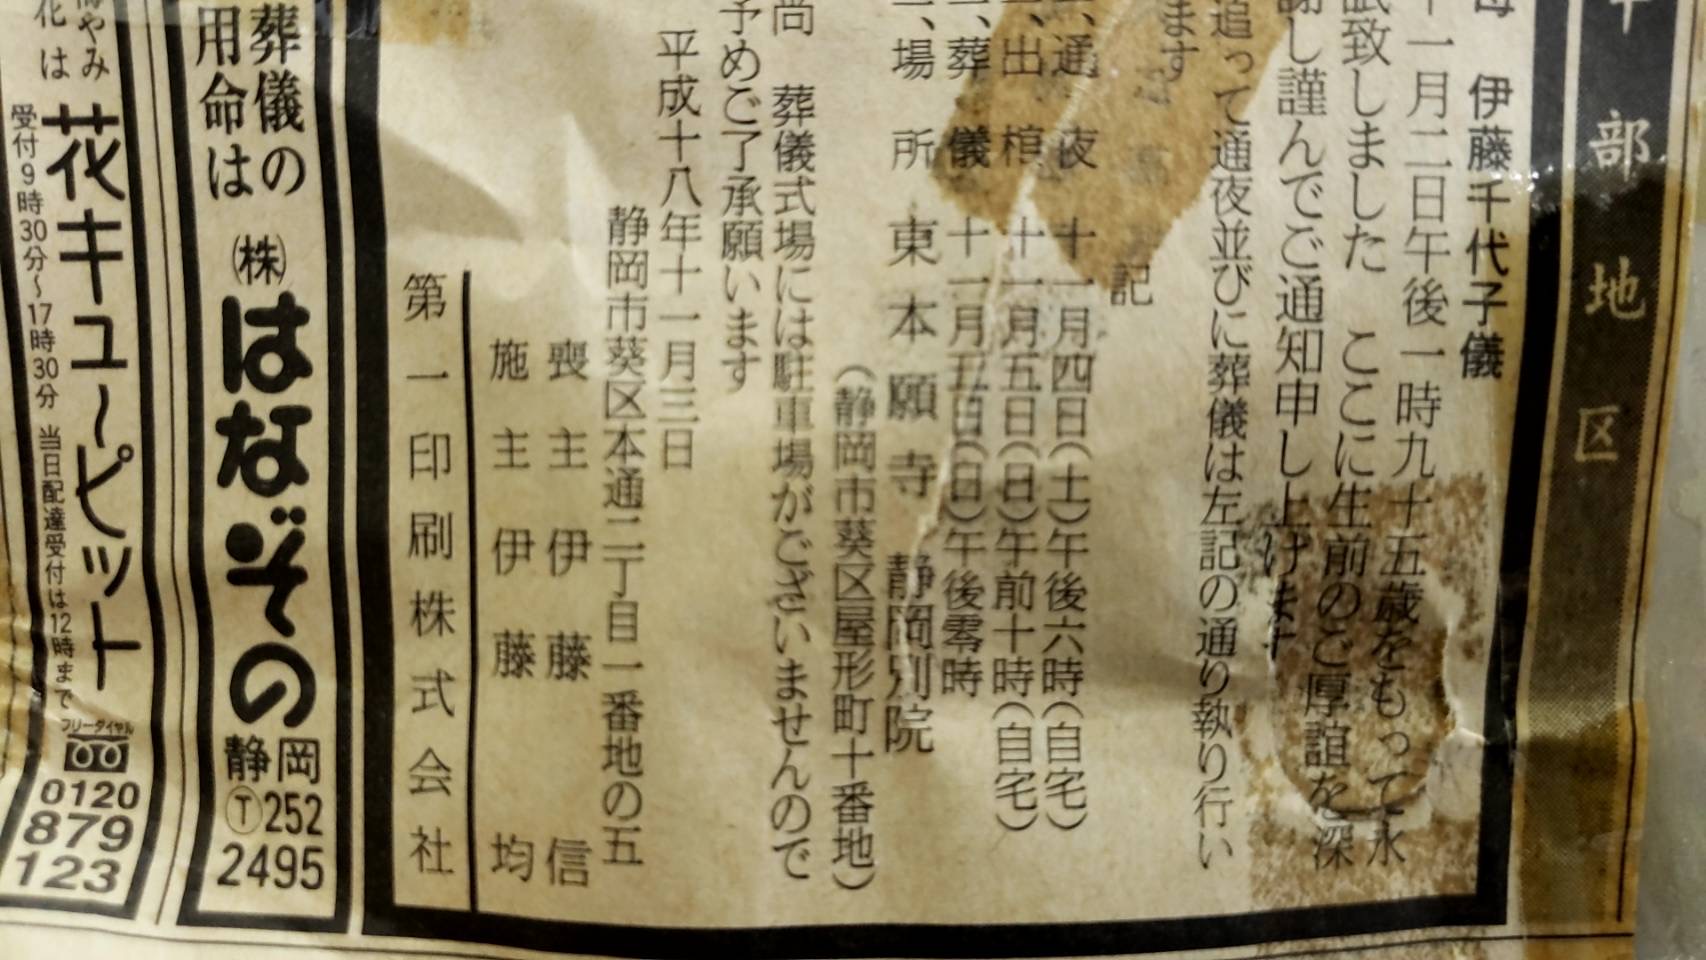 部地区
伊藤千代子儀
一月二日午後一時九十五歳をもって永
致しました ここに生前のご厚誼を深
し謹んでご通知申し上げます
追って通夜並びに葬儀は左記の通り執り行い
ます
記
通夜 十一月四日(土)午後六時(自宅)
出棺 十一月五日(日)午前十時(自宅)
葬儀 十一月五日(日)午後零時
場所 東本願寺 静岡別院
(静岡市葵区屋形町十番地)
尚 葬儀式場には駐車場がございませんので
予めご了承願います
平成十八年十一月三日
静岡市葵区本通二丁目一番地の五
喪主 伊藤 信
施主 伊藤 均
第一印刷株式会社
葬儀の
用命は
㈱はなぞの
静岡
Ⓣ252
2495
やみ
花は
花キューピット
受付9時30分~17時30分 当日配達受付は12時まで
フリーダイヤル
0120
879
123